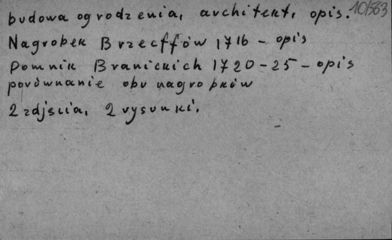 budowa ogrodzenia, architekt, opis.
10/563
Nagrobek Brzecffów 1716 - opis
Pomnik Branickich 1720-25 - opis
porównanie obu nagrobków
2 zdjścia, 2 rysunki.